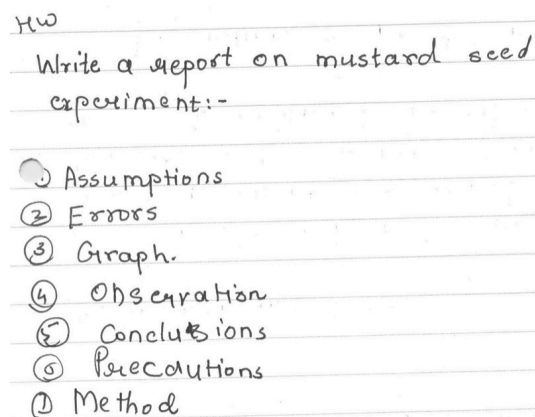 HW
Write a report on mustard seed
experiment:-
① Assumptions
② Errors
③ Graph.
④ Observation
⑤ Conclusions
⑥ Precautions
① Method